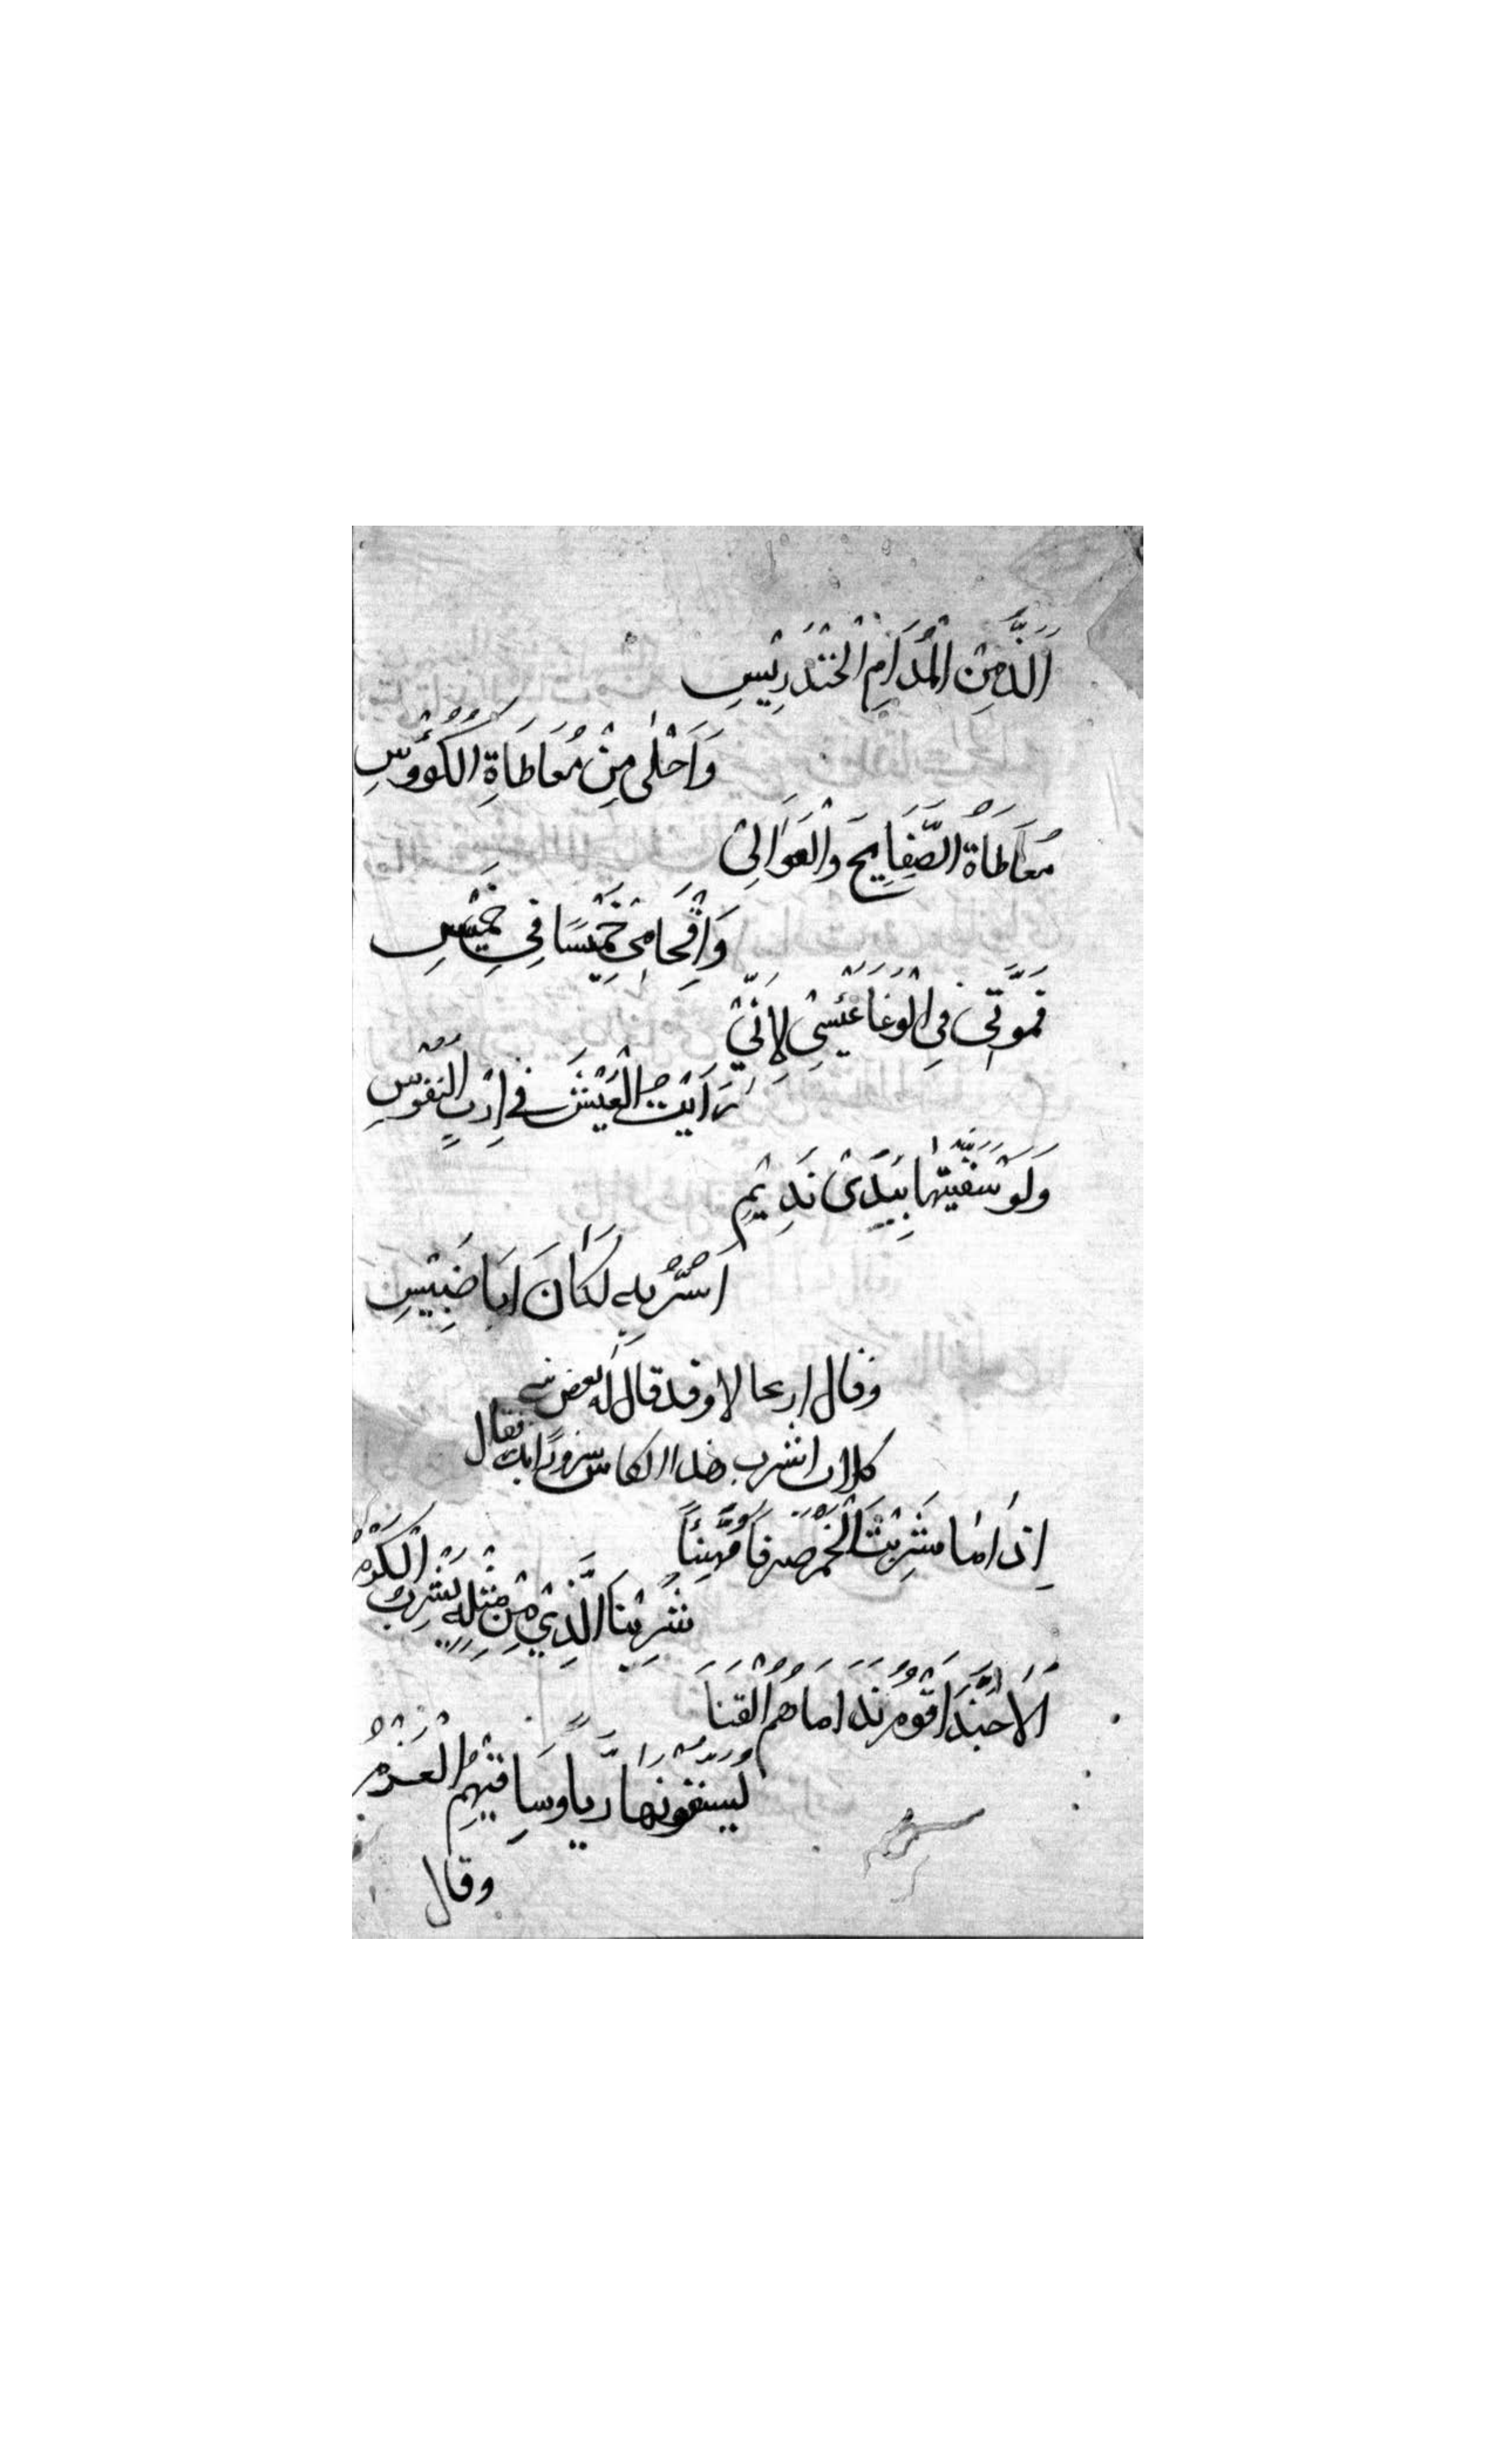 اَلَذُّ مِنَ الْمُدَامِ الْخَنْدَرِيْسِ
وَاَحْلٰى مِنْ مُعَاطَاةِ الكُؤُوْسِ
مُعَاطَاةُ الصَّفَايِحِ وَالْعَوَالِيْ
وَاِقْحَامِيْ خَمِيْسًا فِي خَمِيْسِ
فَمَوْتِيْ فِي الْوَغَا عَيْشِيْ لِاَنِّيْ
رَاَيْتُ الْعَيْشَ في اِرْبِ النُّفُوْسِ
وَلَوْ سُقِّيْتُهَا بِيَدَيْ نَدِيْمِ
اُسَرُّ بِهِ لَكَانَ اَبَا ضَبِيْسِ
وقال ارتجالا وقد قال له بعض بني
كلاب اشرب هذا الكاس سرورًا بك فقال
اِذَا مَا شَرِبْتَ الْخَمْرَ صِرْفًا مُهَنَّئًا
شَرِبْنَا الَّذِيْ مِنْ مِثْلِهِ يَشْرَبُ الْكَرْمُ
اَلَا حَبَّذَا قَوْمٌ نَدَامَاهُمُ الْقَنَا
يُسَقُّوْنَهَا رِيًّا وَسَاقِيْهِمُ الْعَزْمُ
وقال